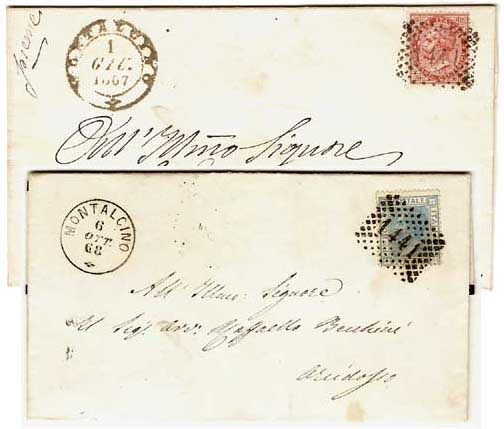 Siena
MONTALCINO
1
GIU.
1867
All' Illmo Signore
MONTALCINO
6
OTT
68
1441
TALE
All' Illmo: Signore
Il Sigr avvo: Raffaello Becchini
Arcidosso